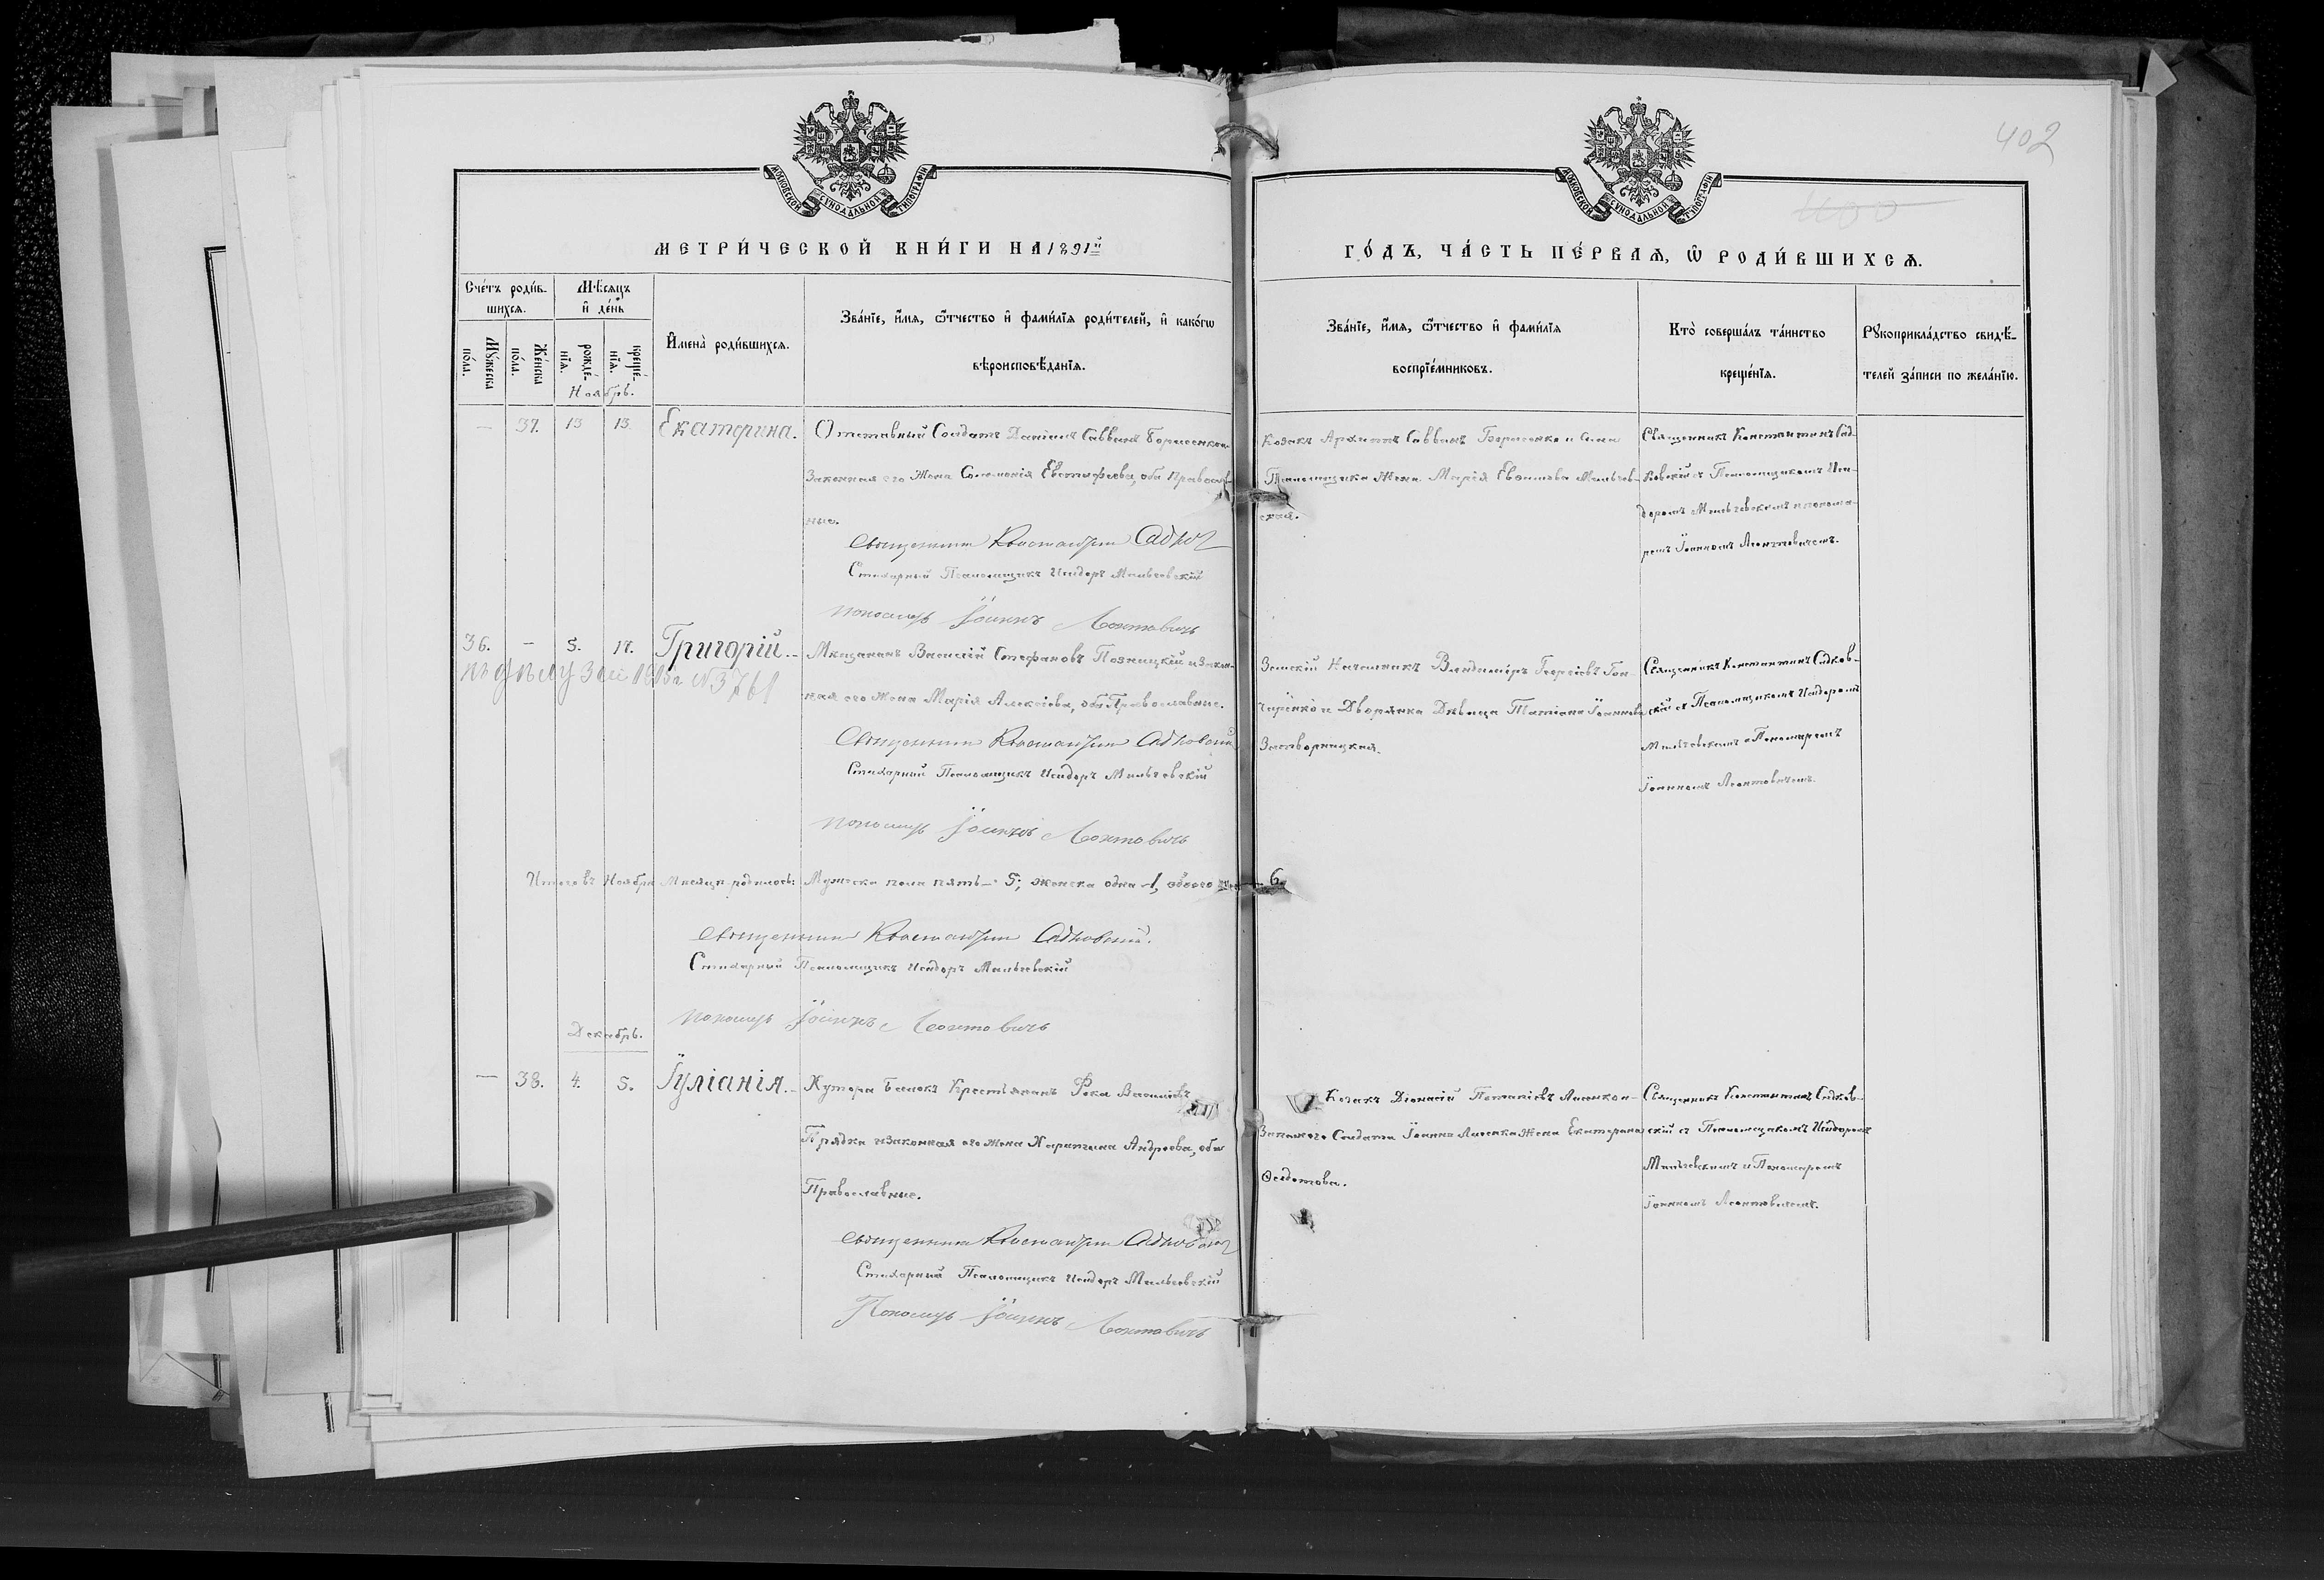 402
400
МОСКОВСКОЙ СѴНОДАЛЬНОЙ ТИПОГРАФІИ
МОСКОВСКОЙ СѴНОДАЛЬНОЙ ТИПОГРАФІИ
МЕТРИ́ЧЕСКОЙ КНИ́ГИ НА 1891й
ГО́ДЪ, ЧА́СТЬ ПЕ́РВАѦ, Ѡ҆ РОДИ́ВШИХСѦ.
Сче́тъ роди́в-
шихсѧ.
Мѣ́сѧцъ
и҆ де́нь
Мꙋ́жеска по́ла.
Же́нска по́ла.
рожде́-
нїѧ.
креще́-
нїѧ.
И҆мена̀ роди́вшихсѧ.
Зва́нїе, и҆́мѧ, ѻ҆́тчество и҆ фами́лїѧ роди́телей, и҆ како́гѡ
вѣроисповѣ́данїѧ.
Зва́нїе, и҆́мѧ, ѻ҆́тчество и҆ фами́лїѧ
воспрїе́мниковъ.
Кто̀ соверша́лъ та́инство
креще́нїѧ.
Рꙋкоприкла́дство свидѣ́-
телей за́писи по жела́нїю.
Ноябрь.
— 37. 13 13. Екатерина.
Отставный Солдатъ Даніилъ Саввинъ
Законная его Жена Евстафьева, оба Православ-
ные.
Священникъ Константинъ
Стихарный Псаломщикъ Исидоръ Мильгевскій
Пономарь Іоаннъ Леонтовичъ
Козакъ Архиппъ Саввинъ Борисенко и
Псаломщика Жена Марія Мильгев-
ская.
Священникъ Константинъ Сад-
ковскій съ Псаломщикомъ Иси-
доромъ Мильгевскимъ и понома-
ремъ Іоанномъ Леонтовичемъ.
36. — 5. 17. Григорій.
№ 3761
Мѣщанинъ Василій Стефановъ Позницкій и закон-
ная его Жена Марія Алексіева, оба Православные.
Священникъ Константинъ Садковскій
Стихарный Псаломщикъ Исидоръ Мильгевскій
Пономарь Іоаннъ Леонтовичъ
Земскій Начальникъ Владиміръ Георгіевъ Гон-
чаренко и Дворянка Дѣвица Татіана Іоаннова
Священникъ Константинъ Садков-
скій съ Псаломщикомъ Исидоромъ
Мильгевскимъ и Пономаремъ
Іоанномъ Леонтовичемъ.
Итого въ Ноябрѣ Мѣсяцѣ родилось: Мужеска пола пять — 5; женска одна — 1, обоего 6.
Священникъ Константинъ Садковскій.
Стихарный Псаломщикъ Исидоръ Мильгевскій
Пономарь Іоаннъ Леонтовичъ
Декабрь.
— 38. 4. 5. Іуліанія.
Хутора Крестьянинъ Фока Василіевъ
Прядка и законная его жена Харитина Андреева, оба
Православные.
Священникъ Константинъ Садковскій
Стихарный Псаломщикъ Исидоръ Мильгевскій
Пономарь Іоаннъ Леонтовичъ
Козакъ Діонисій Потапіевъ
Солдата Іоанна Жена Екатерина
Ѳедотова.
Священникъ Константинъ Садков-
скій съ Псаломщикомъ Исидоромъ
Мильгевскимъ и Пономаремъ
Іоанномъ Леонтовичемъ.